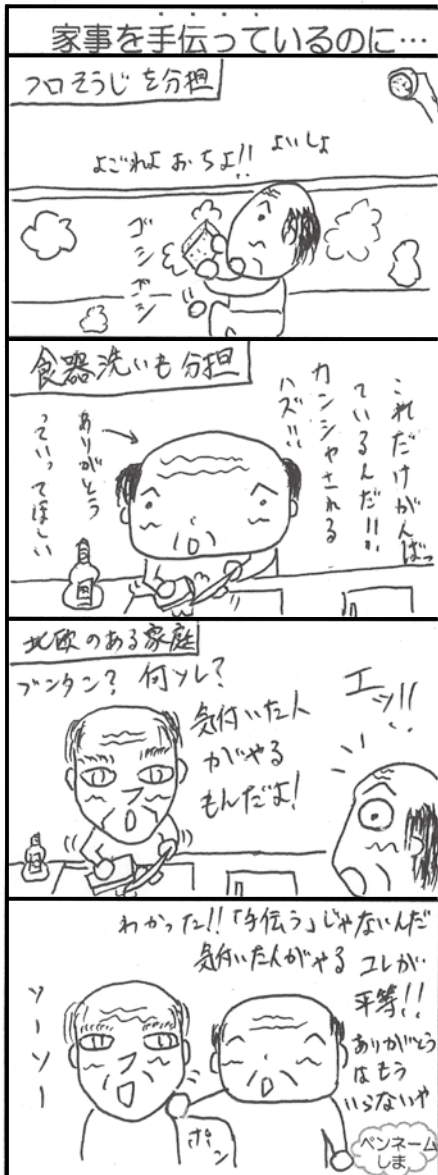 家事を手伝っているのに…
フロそうじを分担
よいしょ
よごれよ おちよ!!
ゴシゴシ
食器洗いも分担
これだけがんばっ
ているんだ!!
カンシャされる
ハズ!!
ありがとう
っていってほしい
北欧のある家庭
ブンタン? 何ソレ?
気付いた人
がやる
もんだよ!
エッ!!
わかった!!「手伝う」じゃないんだ
気付いた人がやる コレが
平等!!
ありがとう
はもう
いらないや
ソーソー
ポン
ペンネーム
しま